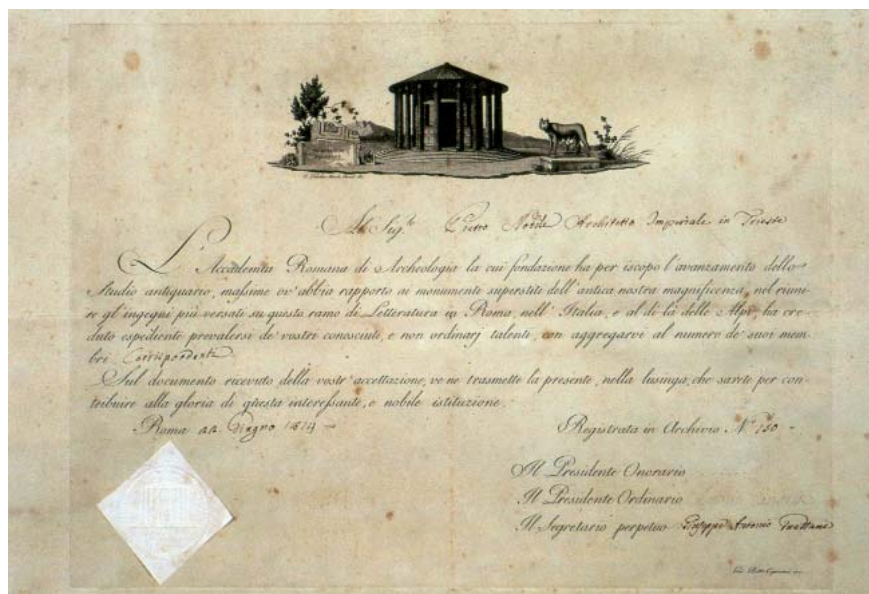 Al Sig.re Pietro Nobile Architetto Imperiale in Trieste
L'Accademia Romana di Archeologia la cui fondazione ha per iscopo l'avanzamento dello
Studio antiquario, massime ov'abbia rapporto ai monumenti superstiti dell'antica nostra magnificenza, nel riuni-
re gl'ingegni più versati su questo ramo di Letteratura in Roma, nell'Italia, e al di là delle Alpi, ha cre-
duto espediente prevalersi de' vostri conosciuti, e non ordinarj talenti, con aggregarvi al numero de' suoi mem-
bri Corrispondenti
Sul documento ricevuto della vostr'accettazione, ve ne trasmette la presente, nella lusinga, che sarete per con-
tribuire alla gloria di questa interessante, e nobile istituzione.
Roma 22 Giugno 1814
Registrata in Archivio N.° 150
Il Presidente Onorario
Il Presidente Ordinario
Il Segretario perpetuo Giuseppe Antonio Guattani